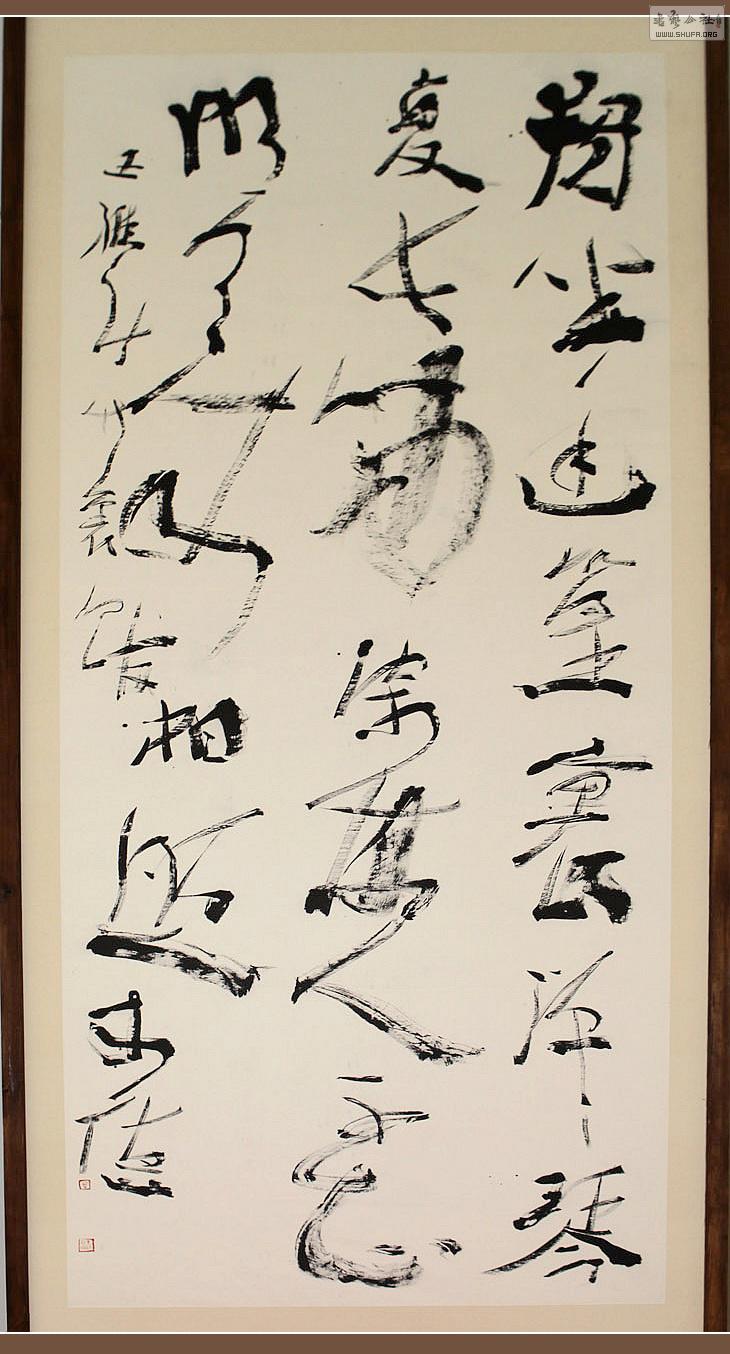 獨坐幽篁裏彈琴
复长嘯深林人不知
明月來相照
王維詩竹裏館
书艺公社
WWW.SHUFA.ORG